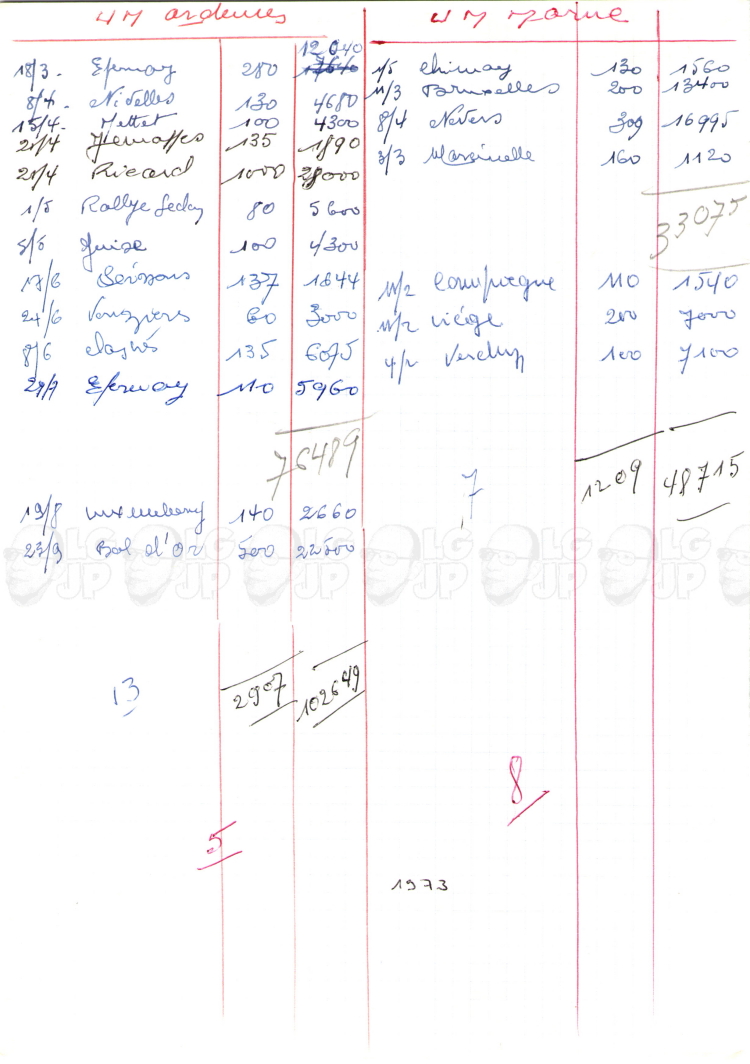 UM ardennes
12040
18/3. Epernay 280 17640
8/4. Nivelles 130 4680
15/4. Mettet 100 4300
21/4 Jemappes 135 1890
21/4 Ricard 1000 28000
1/5 Rallye Sedan 80 5600
5/5 Guise 100 4300
17/6 Soissons 137 1844
24/6 Vouziers 60 3000
8/6 135 6075
29/9 Epernay 110 5960
76489
19/8 Luxembourg 140 2660
23/9 Bol d'Or 500 22500
13 2907 102649
5
UM Marne
1/5 Chimay 130 1560
11/3 Bruxelles 200 13400
8/4 Nevers 309 16995
3/3 Marcinelle 160 1120
33075
11/2 Compiegne 110 1540
11/2 Liége 200 7000
4/2 Verdun 100 7100
7 1209 48715
8
1973
LG JP LG JP LG JP LG JP LG JP LG JP